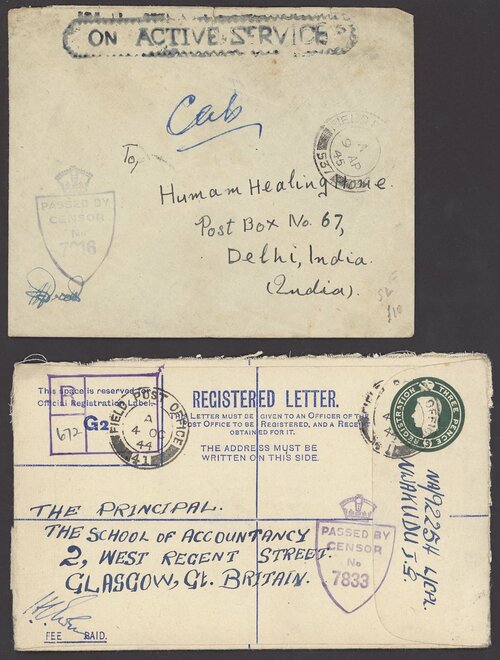 ON ACTIVE SERVICE
Cab
To,
FIELD
A
9 AP
45
537
Humam Healing Home.
Post Box No. 67,
Delhi, India.
(India).
PASSED BY
CENSOR
No
£10
This space is reserved for
Official Registration Label.
R
672
G2
FIELD POST OFFICE
A
4 OC
44
41
REGISTERED LETTER.
THE LETTER MUST BE GIVEN TO AN OFFICER OF THE
POST OFFICE TO BE REGISTERED, AND A RECE
OBTAINED FOR IT.
THE ADDRESS MUST BE
WRITTEN ON THIS SIDE.
REGISTRATION THREE PENCE
THE PRINCIPAL.
THE SCHOOL OF ACCOUNTANCY
2, WEST REGENT STREET.
GLASGOW, Gt. BRITAIN.
PASSED BY
CENSOR
No
7833
NA/92254 L/CPL.
NWAKUDU J.S.
FEE PAID.